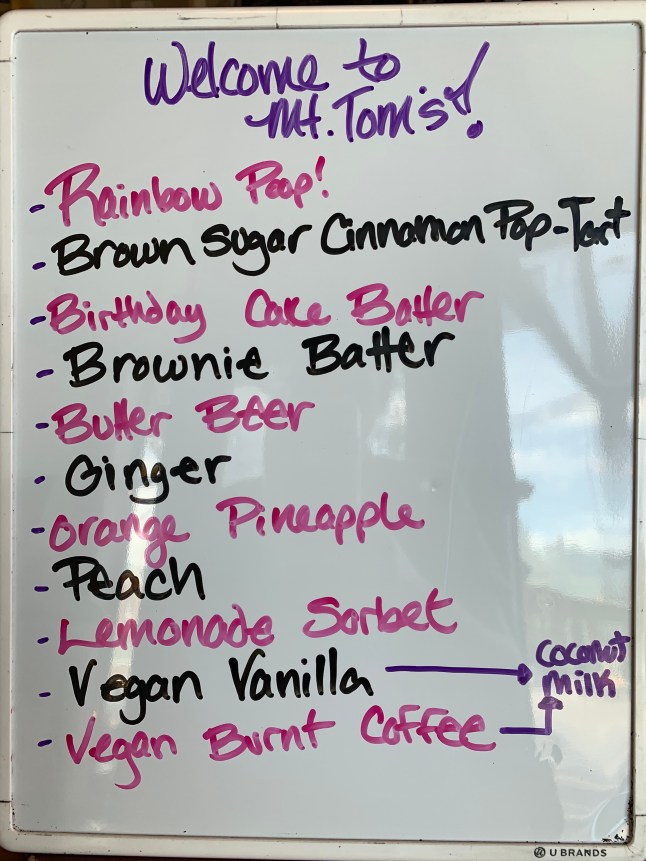 Welcome to
Mt. Tom's!
- Rainbow Poop!
- Brown Sugar Cinnamon Pop-Tart
- Birthday Cake Batter
- Brownie Batter
- Butter Beer
- Ginger
- Orange Pineapple
- Peach
- Lemonade Sorbet
- Vegan Vanilla
coconut
milk
- Vegan Burnt Coffee
U BRANDS